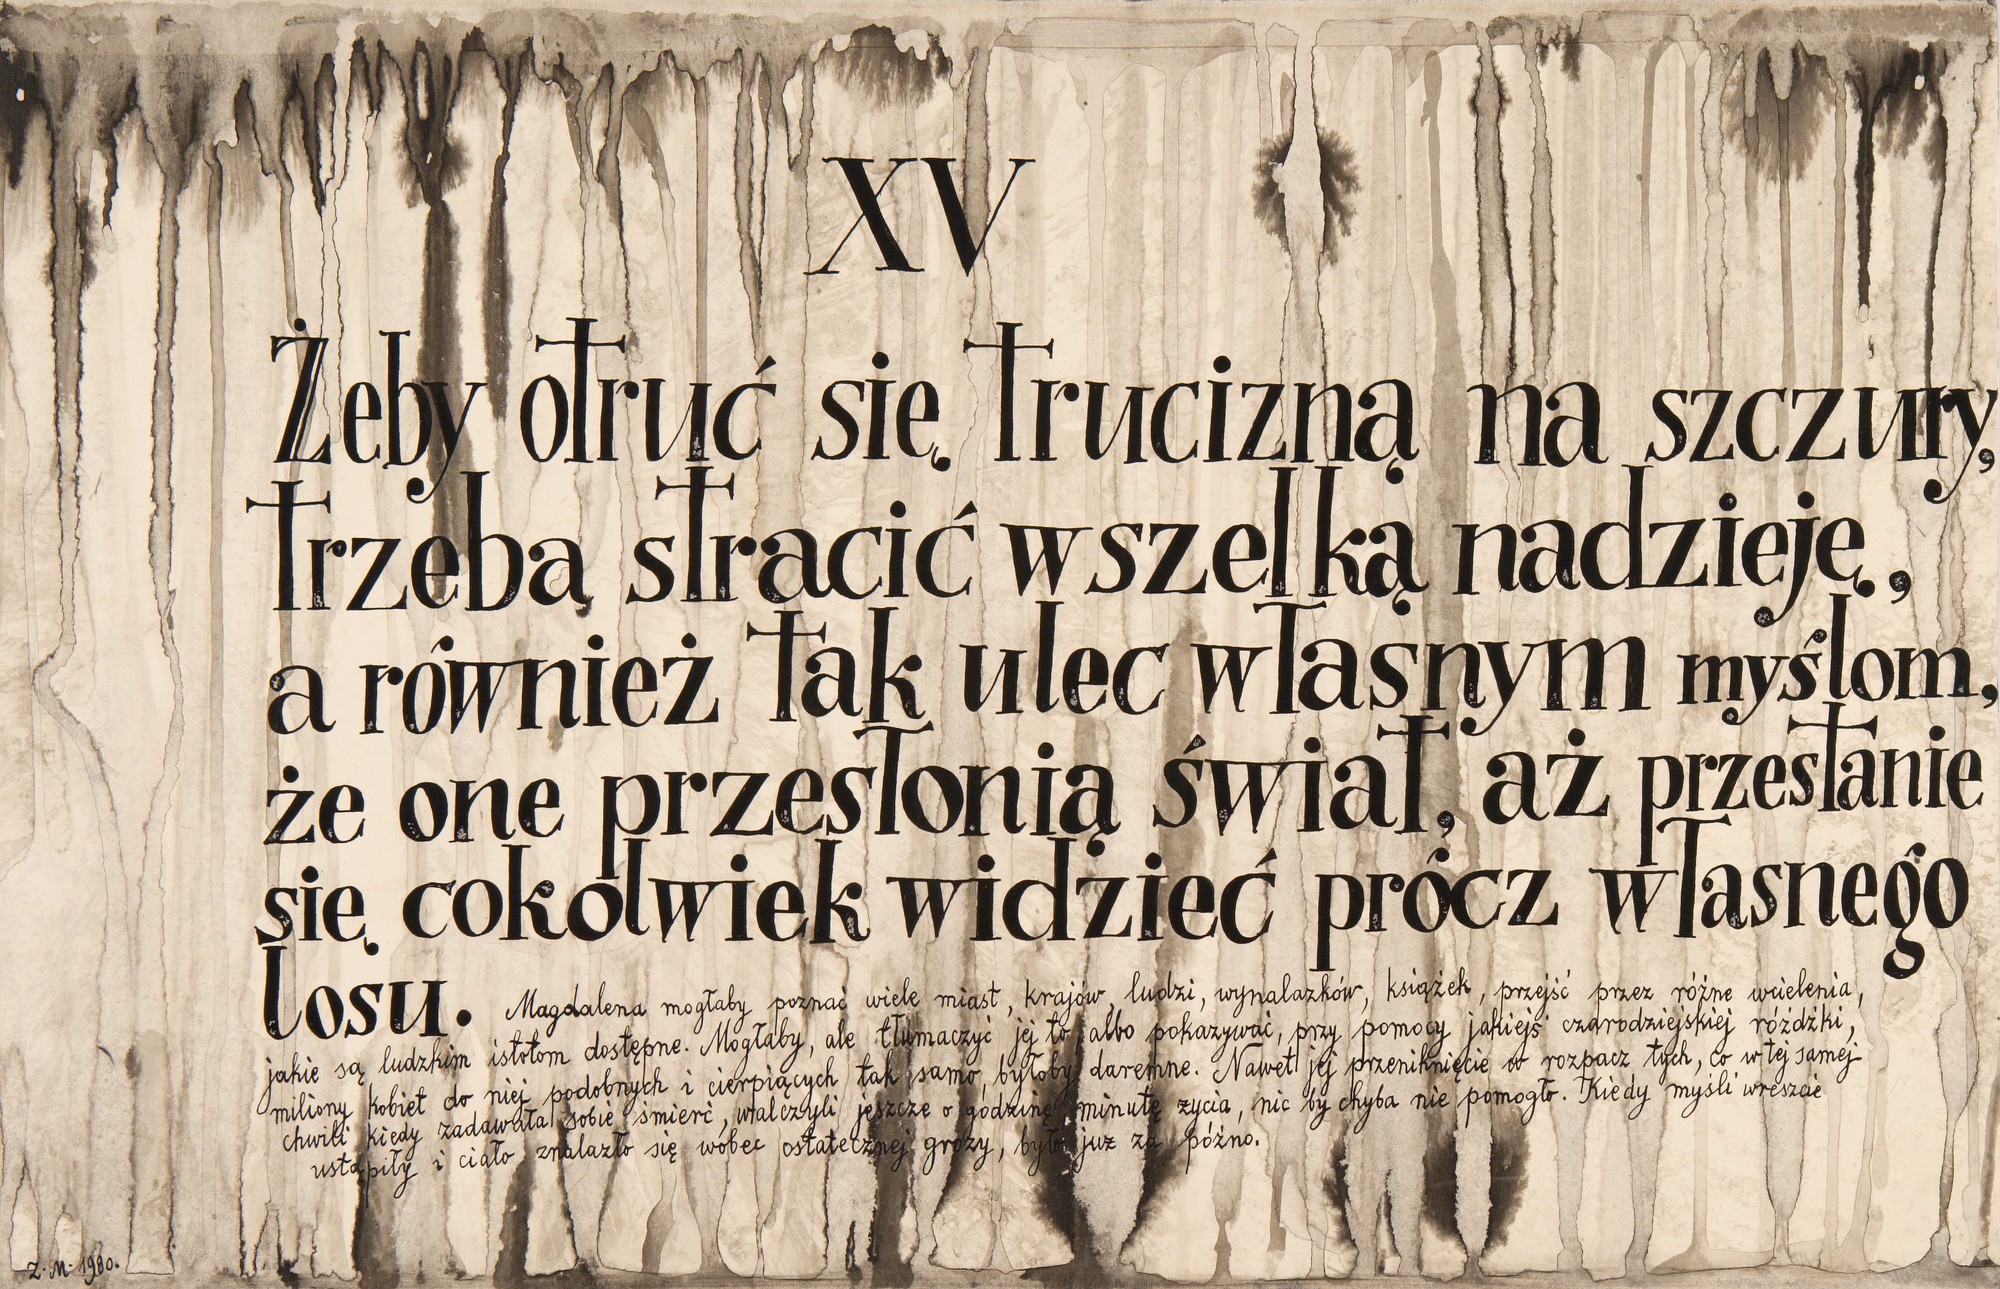 XV
Żeby otruć się trucizną na szczury,
trzeba stracić wszelką nadzieję,
a również tak ulec własnym myślom,
że one przesłonią świat, aż przestanie
się cokolwiek widzieć prócz własnego
losu. Magdalena mogłaby poznać wiele miast, krajów, ludzi, wynalazków, książek, przejść przez różne wcielenia,
jakie są ludzkim istotom dostępne. Mogłaby, ale tłumaczyć jej to albo pokazywać, przy pomocy jakiejś czarodziejskiej różdżki,
miliony kobiet do niej podobnych i cierpiących tak samo, byłoby daremne. Nawet jej przeniknięcie w rozpacz tych, co w tej samej
chwili kiedy zadawała sobie śmierć, walczyli jeszcze o godzinę minutę życia, nic by chyba nie pomogło. Kiedy myśli wreszcie
ustąpiły i ciało znalazło się wobec ostatecznej grozy, było już za późno.
Z. M. 1980.